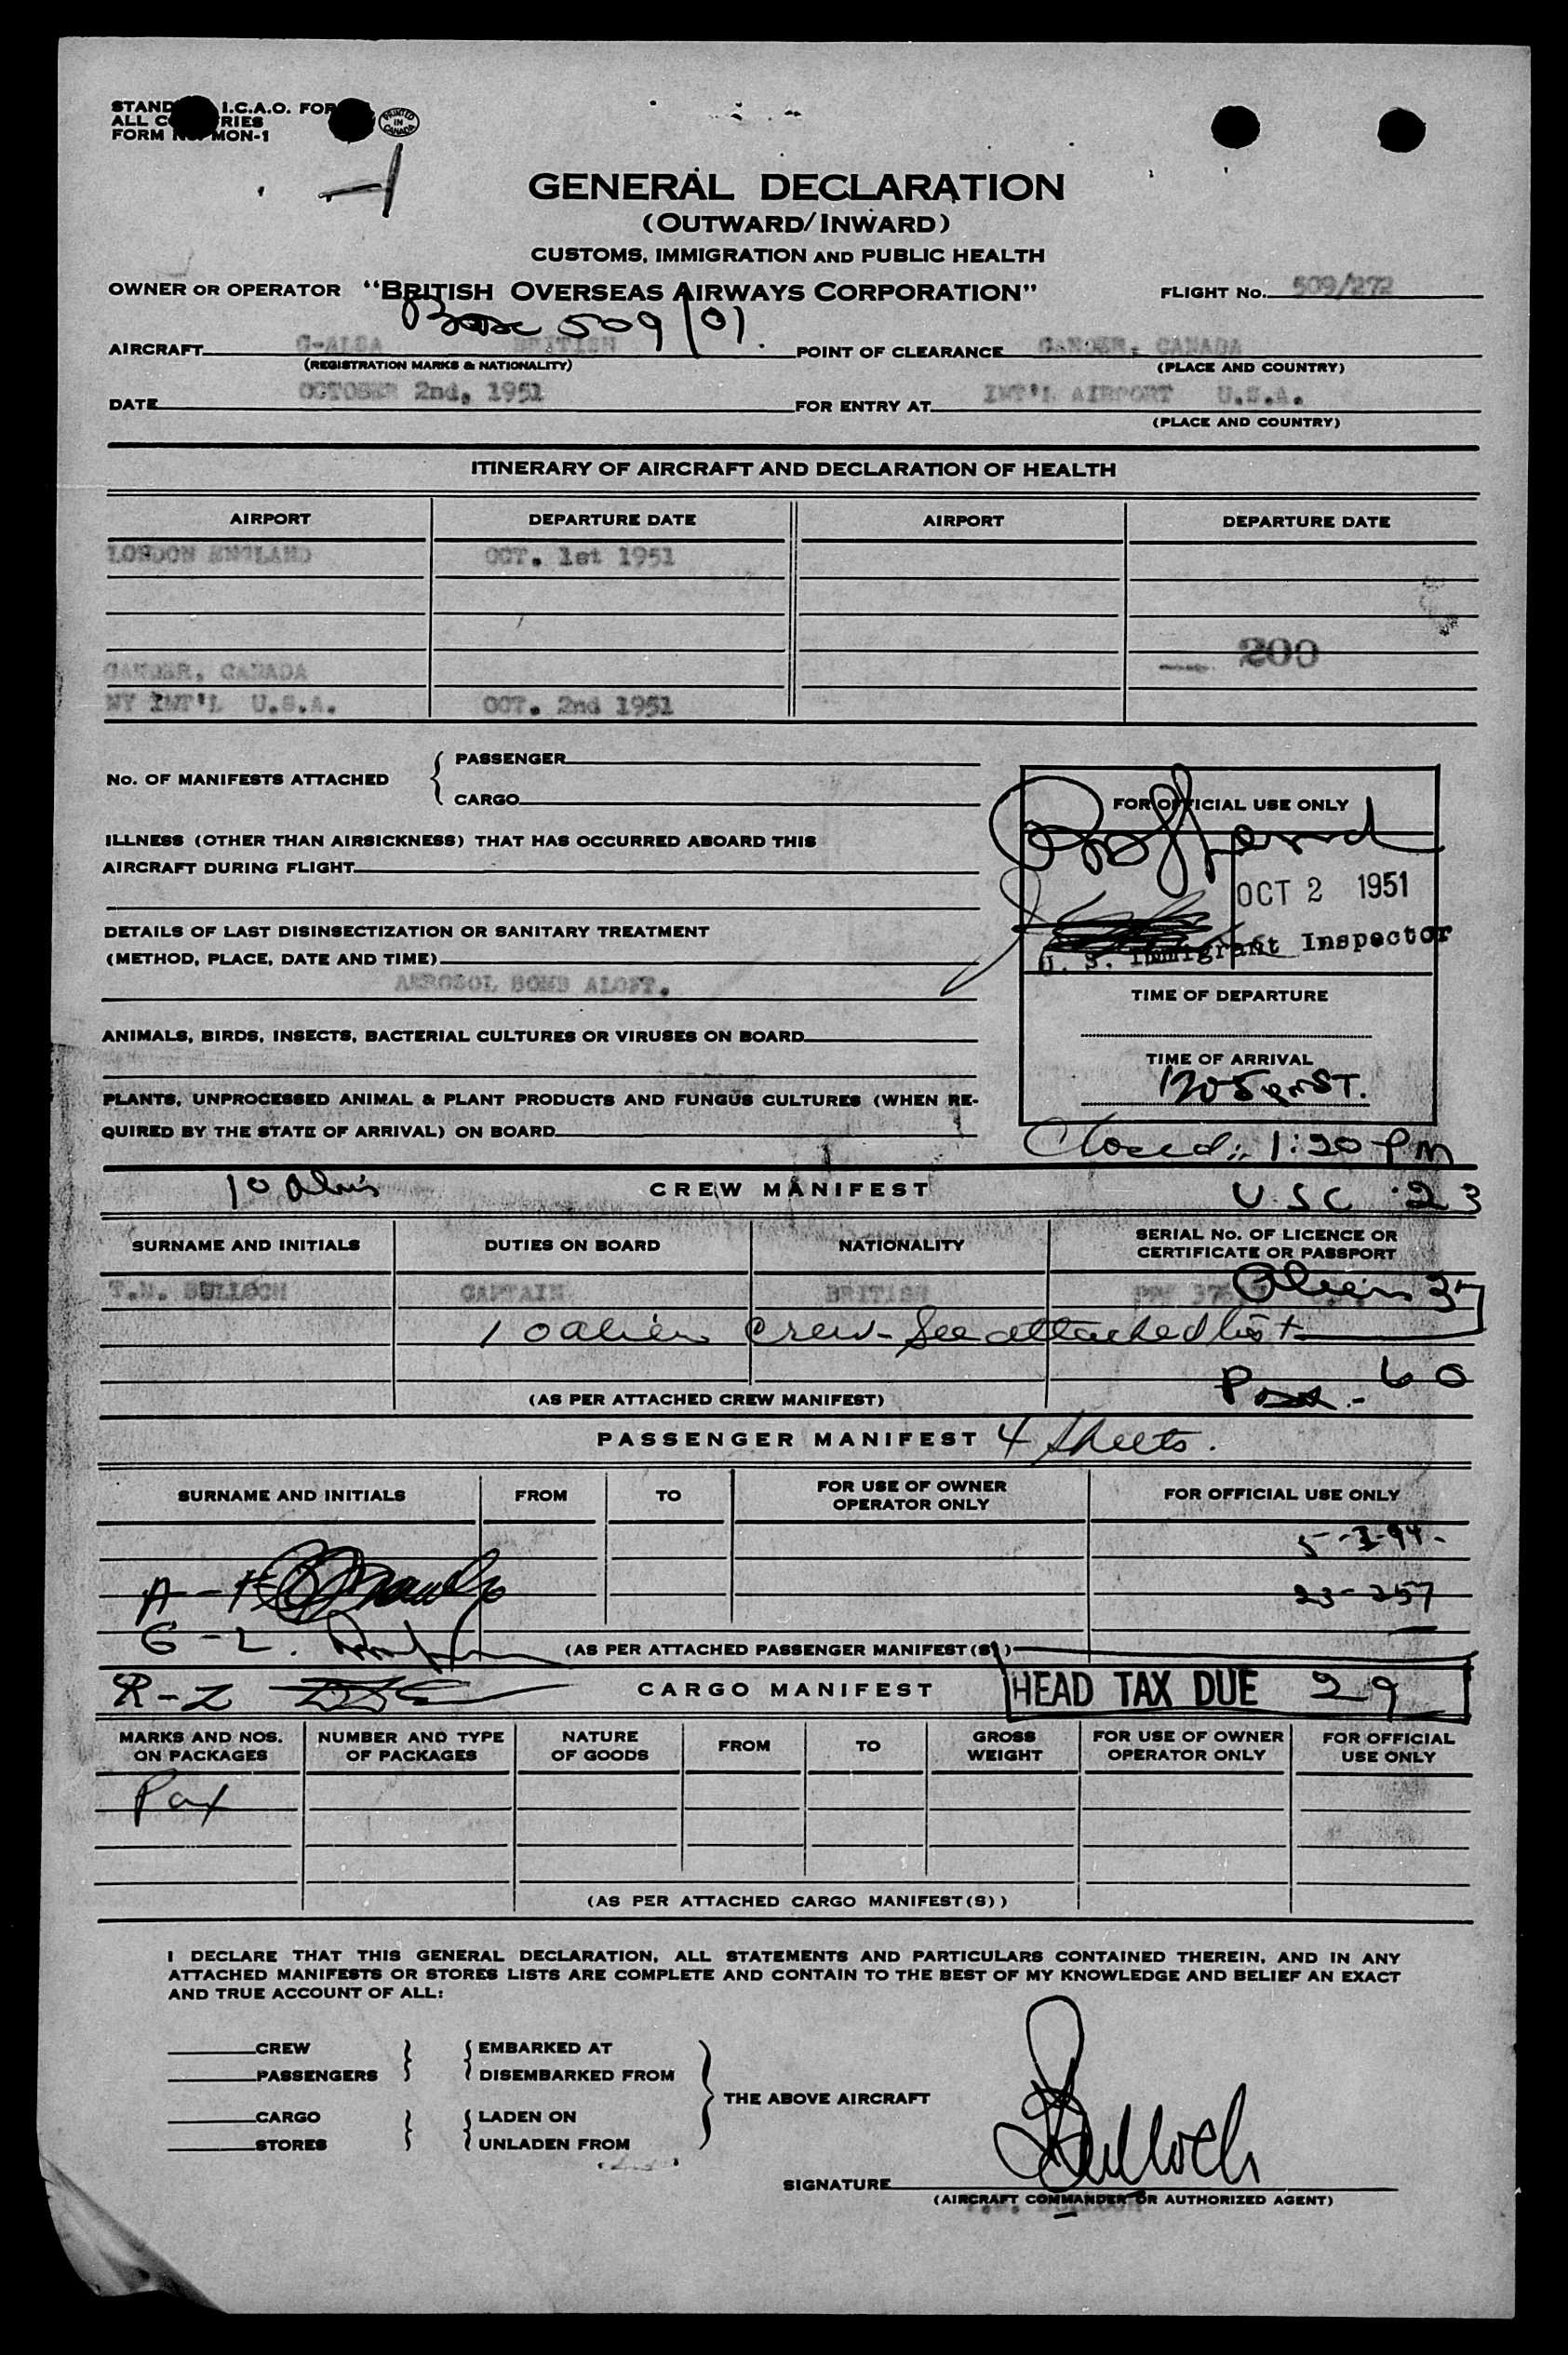 STAND I.C.A.O. FOR
ALL C RIES
FORM NO. MON-1
PRINTED IN CANADA
GENERAL DECLARATION
(OUTWARD/INWARD)
CUSTOMS, IMMIGRATION AND PUBLIC HEALTH
OWNER OR OPERATOR "BRITISH OVERSEAS AIRWAYS CORPORATION" FLIGHT No. 509/272
509/01
AIRCRAFT G-ALSA BRITISH POINT OF CLEARANCE GANDER, CANADA
(REGISTRATION MARKS & NATIONALITY) (PLACE AND COUNTRY)
DATE OCTOBER 2nd, 1951 FOR ENTRY AT INT'L AIRPORT U.S.A.
(PLACE AND COUNTRY)
ITINERARY OF AIRCRAFT AND DECLARATION OF HEALTH
AIRPORT DEPARTURE DATE AIRPORT DEPARTURE DATE
LONDON ENGLAND OCT. 1st 1951
200
GANDER, CANADA
NY INT'L U.S.A. OCT. 2nd 1951
No. OF MANIFESTS ATTACHED
PASSENGER
CARGO
FOR OFFICIAL USE ONLY
ILLNESS (OTHER THAN AIRSICKNESS) THAT HAS OCCURRED ABOARD THIS
AIRCRAFT DURING FLIGHT
OCT 2 1951
DETAILS OF LAST DISINSECTIZATION OR SANITARY TREATMENT
U. S. Immigrant Inspector
(METHOD, PLACE, DATE AND TIME)
AEROSOL BOMB ALOFT.
TIME OF DEPARTURE
ANIMALS, BIRDS, INSECTS, BACTERIAL CULTURES OR VIRUSES ON BOARD
TIME OF ARRIVAL
PLANTS, UNPROCESSED ANIMAL & PLANT PRODUCTS AND FUNGUS CULTURES (WHEN RE-
QUIRED BY THE STATE OF ARRIVAL) ON BOARD
Closed: 1:20 PM
10 CREW MANIFEST USC 23
SURNAME AND INITIALS DUTIES ON BOARD NATIONALITY SERIAL No. OF LICENCE OR CERTIFICATE OR PASSPORT
T.M. BULLOCH CAPTAIN BRITISH
Aliens 37
10 alien crew - See attached list
60
(AS PER ATTACHED CREW MANIFEST)
PASSENGER MANIFEST 4 sheets.
SURNAME AND INITIALS FROM TO FOR USE OF OWNER OPERATOR ONLY FOR OFFICIAL USE ONLY
23-257
G - L
(AS PER ATTACHED PASSENGER MANIFEST(S))
R-Z CARGO MANIFEST HEAD TAX DUE 29
MARKS AND NOS. ON PACKAGES NUMBER AND TYPE OF PACKAGES NATURE OF GOODS FROM TO GROSS WEIGHT FOR USE OF OWNER OPERATOR ONLY FOR OFFICIAL USE ONLY
Pax
(AS PER ATTACHED CARGO MANIFEST(S))
I DECLARE THAT THIS GENERAL DECLARATION, ALL STATEMENTS AND PARTICULARS CONTAINED THEREIN, AND IN ANY
ATTACHED MANIFESTS OR STORES LISTS ARE COMPLETE AND CONTAIN TO THE BEST OF MY KNOWLEDGE AND BELIEF AN EXACT
AND TRUE ACCOUNT OF ALL:
CREW EMBARKED AT
PASSENGERS DISEMBARKED FROM
THE ABOVE AIRCRAFT
CARGO LADEN ON
STORES UNLADEN FROM
Bulloch
SIGNATURE
(AIRCRAFT COMMANDER OR AUTHORIZED AGENT)
T.M. BULLOCH